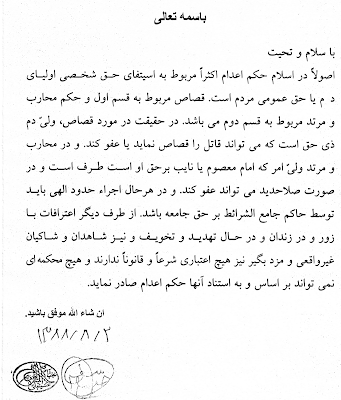 باسمه تعالی
با سلام و تحیت
اصولاً در اسلام حکم اعدام اکثراً مربوط به اسیتفای حق شخصی اولیای
دم یا حق عمومی مردم است. قصاص مربوط به قسم اول و حکم محارب
و مرتد مربوط به قسم دوم می باشد. در حقیقت در مورد قصاص، ولیّ دم
ذی حق است که می تواند قاتل را قصاص نماید یا عفو کند. و در محارب
و مرتد ولیّ امر که امام معصوم یا نایب برحق او است طرف است و در
صورت صلاحدید می تواند عفو کند. و در هرحال اجراء حدود الهی باید
توسط حاکم جامع الشرائط بر حق جامعه باشد. از طرف دیگر اعترافات با
زور و در زندان و در حال تهدید و تخویف و نیز شاهدان و شاکیان
غیرواقعی و مزد بگیر نیز هیچ اعتباری شرعاً و قانوناً ندارند و هیچ محکمه ای
نمی تواند بر اساس و به استناد آنها حکم اعدام صادر نماید.
ان شاء الله موفق باشید.
۱۳۸۸/۸/۲